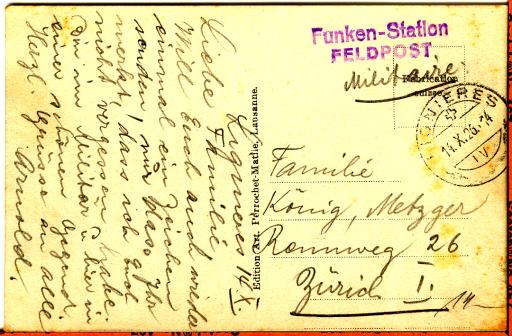 Lignières 14. X.
Liebe Familie
Will Euch auch wieder
einmal ein Zeichen
senden nur dass Ihr
merkt, dass ich Euch
nicht vergessen habe.
Bin im Militär u. hier in
einer schönen Gegend.
Herzl. Grüsse an alle
Arnold.
Edition Art. Perrochet-Matile, Lausanne.
Funken-Station
FELDPOST
Militaire
Fabrication
suisse.
LIGNIERES
14.X.26.
IV
Familie
König, Metzger
Rennweg 26
Zürich I.